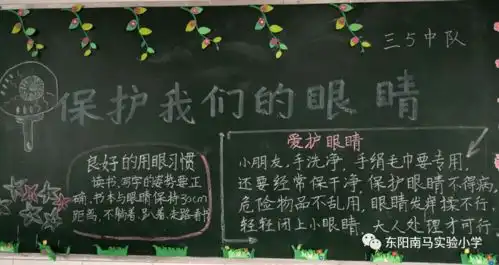 三5中队
保护我们的眼睛
良好的用眼习惯
读书、写字的姿势要正
确,书本与眼睛保持30cm
距离,不躺着、趴着、走路看书
爱护眼睛
小朋友,手洗净,手绢毛巾要专用,
还要经常保干净,保护眼睛不得病,
危险物品不乱用,眼睛发痒揉不行,
轻轻闭上小眼睛,大人处理才可行
东阳南马实验小学